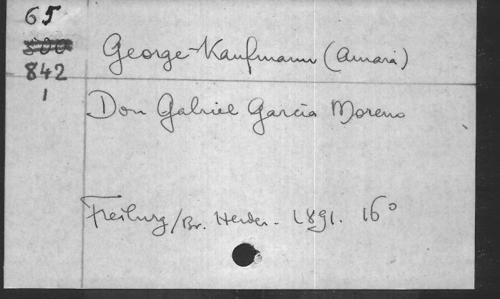 65
842
1
George-Kaufmann (Amara)
Don Gabriel Garcia Moreno
Freiburg/Br. Herder. 1891. 16°